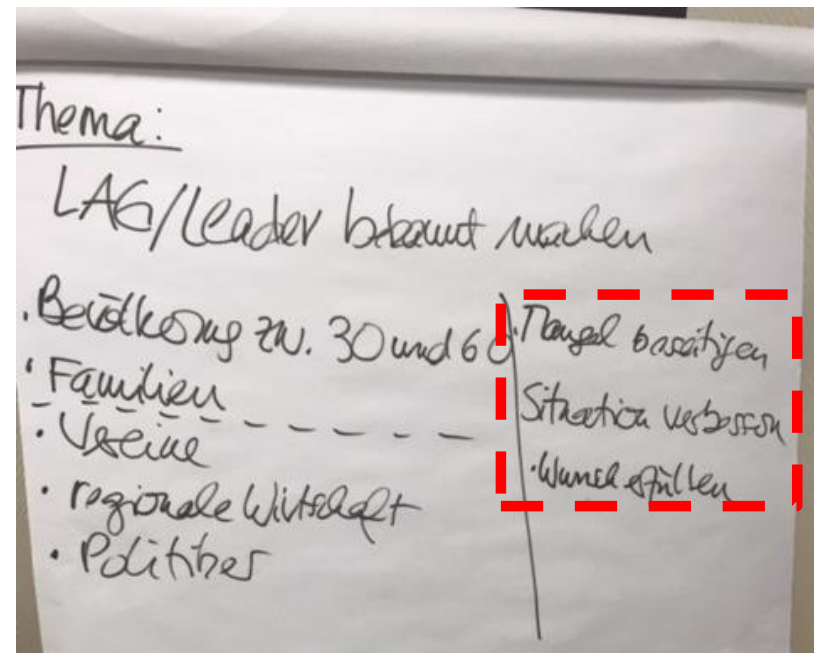 Thema:
LAG/Leader bekannt machen
· Bevölkerung zw. 30 und 60
· Familien
· Vereine
· regionale Wirtschaft
· Politiker
· Mangel beseitigen
Situation verbessern
· Wunsch erfüllen